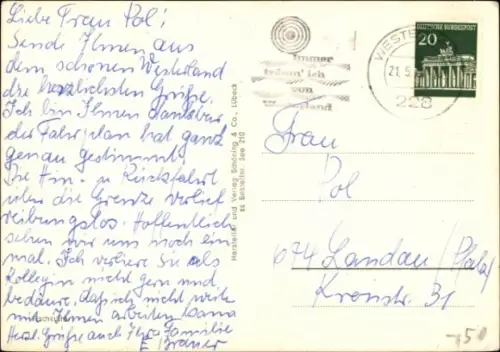 Liebe Frau Pol!
Sende Ihnen aus
dem schönen Westerland
die herzlichsten Grüße.
Ich bin Ihnen dankbar
der Fahrplan hat ganz
genau gestimmt.
Die Hin- u. Rückfahrt
über die Grenze verlief
reibungslos. Hoffentlich
sehen wir uns noch ein
mal. Ich verliere Sie als
Kollegin nicht gern und
bedaure, daß ich nicht mehr
mit Ihnen arbeiten kann
Herzl. Grüße auch Ihrer Familie
E. Brauer
Hersteller und Verlag Schöning & Co., Lübeck
See 210
immer
träum' ich
von
WESTE
21.5.
228
DEUTSCHE BUNDESPOST
20
Frau
Pol
674 Landau/Pfalz
Kronstr. 31
150